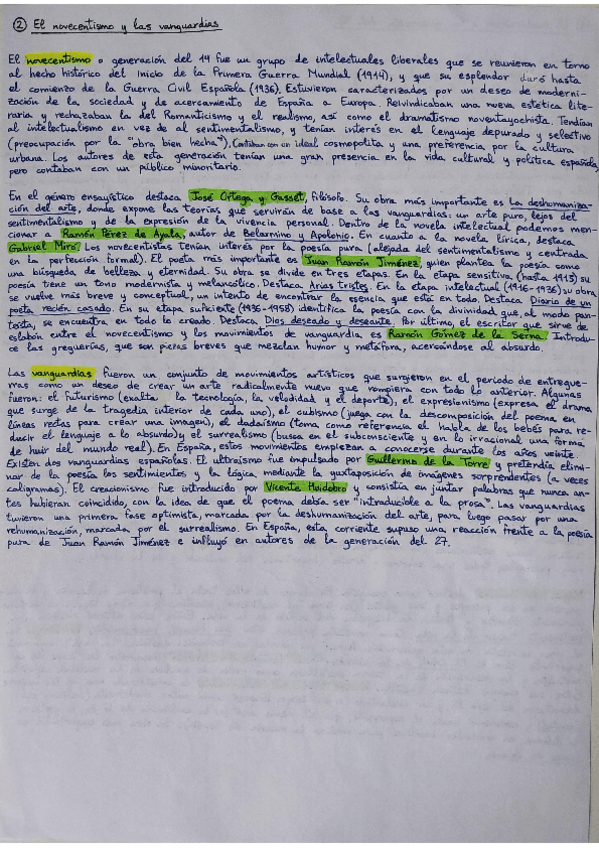 ② El novecentismo y las vanguardias
El novecentismo o generación del 14 fue un grupo de intelectuales liberales que se reunieron en torno
al hecho histórico del inicio de la Primera Guerra Mundial (1914), y que su esplendor duró hasta
el comienzo de la Guerra Civil Española (1936). Estuvieron caracterizados por un deseo de moderni-
zación de la sociedad y de acercamiento de España a Europa. Reivindicaban una nueva estética lite-
raria y rechazaban la del Romanticismo y el realismo, así como el dramatismo noventayochista. Tendían
al intelectualismo en vez de al sentimentalismo, y tenían interés en el lenguaje depurado y selectivo
(preocupación por la "obra bien hecha"). Contaban con un ideal cosmopolita y una preferencia, por la cultura
urbana. Los autores de esta generación tenían una gran presencia en la vida cultural y política española,
pero contaban con un público minoritario.
En el género ensayístico destaca José Ortega y Gasset, filósofo. Su obra más importante es La deshumaniza-
ción del arte, donde expone las teorías que servirán de base a las vanguardias: un arte puro, lejos del
sentimentalismo y de la expresión de la vivencia personal. Dentro de la novela intelectual podemos men-
cionar a Ramón Pérez de Ayala, autor de Belarmino y Apolonio. En cuanto a la novela lírica, destaca
Gabriel Miró. Los novecentistas tenían interés por la poesía pura (alejada del sentimentalismo y centrada
en la perfección formal). El poeta más importante es Juan Ramón Jiménez, quien plantea la poesía como
una búsqueda de belleza y eternidad. Su obra se divide en tres etapas. En la etapa sensitiva (hasta 1915) su
poesía tiene un tono modernista y melancólico. Destaca Arias tristes. En la etapa intelectual (1916-1936) su obra
se vuelve más breve y conceptual, un intento de encontrar la esencia que está en todo. Destaca Diario de un
poeta recién casado. En su etapa suficiente (1936-1958) identifica la poesía con la divinidad que, al modo pan-
teísta, se encuentra en todo lo creado. Destaca Dios deseado y deseante. Por último, el escritor que sirve de
eslabón entre el novecentismo y los movimientos de vanguardia es Ramón Gómez de la Serna. Introdu-
ce las greguerías, que son piezas breves que mezclan humor y metáfora, acercándose al absurdo.
Las vanguardias fueron un conjunto de movimientos artísticos que surgieron en el período de entregue-
rras como un deseo de crear un arte radicalmente nuevo que rompiera con todo lo anterior. Algunas
fueron: el futurismo (exalta la tecnología, la velocidad y el deporte), el expresionismo (expresa el drama
que surge de la tragedia interior de cada uno), el cubismo (juega con la descomposición del poema en
líneas rectas para crear una imagen), el dadaísmo (toma como referencia el habla de los bebés para re-
ducir el lenguaje a lo absurdo) y el surrealismo (busca en el subconsciente y en lo irracional una forma
de huir del mundo real). En España, estos movimientos empiezan a conocerse durante los años veinte.
Existen dos vanguardias españolas. El ultraísmo fue impulsado por Guillermo de la Torre y pretendía elimi-
nar de la poesía los sentimientos y la lógica, mediante la yuxtaposición de imágenes sorprendentes (a veces
caligramas). El creacionismo fue introducido por Vicente Huidobro y consistía en juntar palabras que nunca an-
tes hubieran coincidido, con la idea de que el poema debía ser "intraducible a la prosa". Las vanguardias
tuvieron una primera fase optimista, marcada por la deshumanización del arte, para luego pasar por una
rehumanización, marcada, por el surrealismo. En España, esta corriente supuso una reacción frente a la poesía
pura de Juan Ramón Jiménez e influyó en autores de la generación del 27.